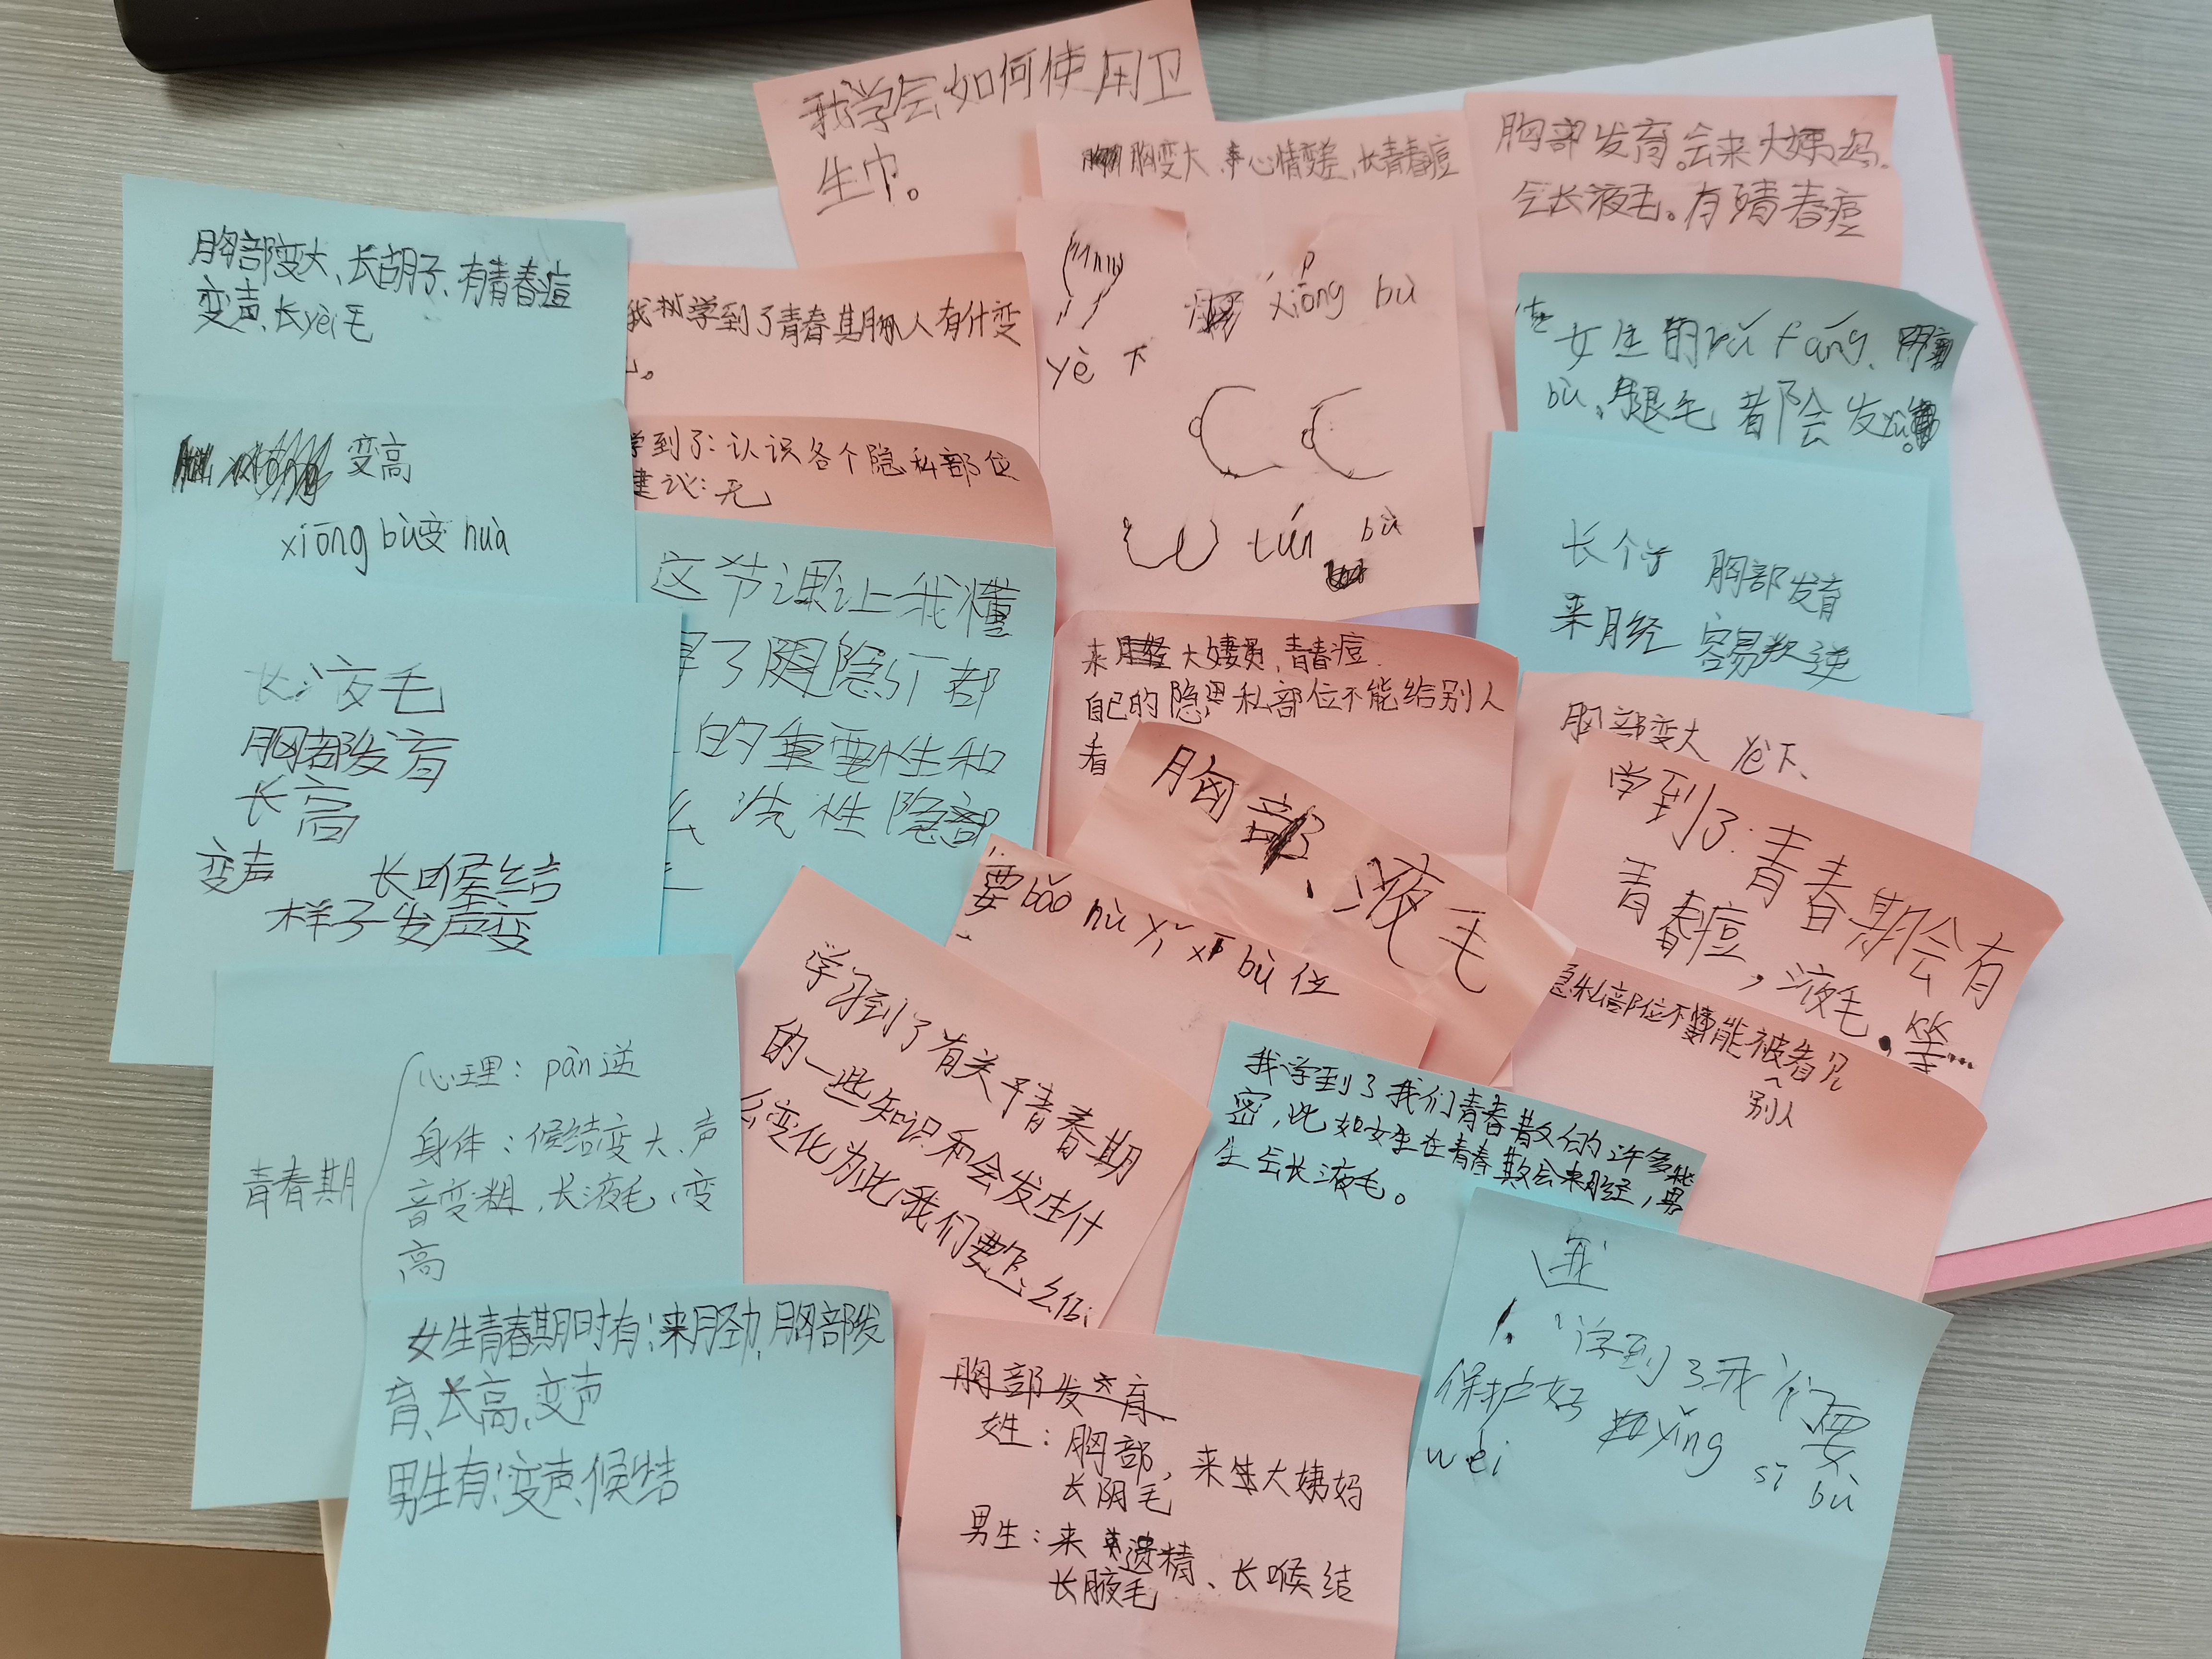 我学会如何使用卫
生巾。
胸变大、心情变差、长青春痘
胸部发育。会来大姨妈。
会长液毛。有青春痘
胸部变大、长胡子、有青春痘
变声、长yèi毛
学到了青春期人有什变
yè下
xiōng bù
tún bù
女生的rǔ fáng、胸
bù、腿毛都会发
变高
xiōng bù变 huà
学到了:认识各个隐私部位
建议:无
长个子 胸部发育
来月经 容易叛逆
这节课让我懂
了隐
的重要性和
么 洗 性 隐部
来 大姨妈,青春痘.
自己的隐私部位不能给别人
看
长液毛
胸部发育
长高
变声 长喉结
样子发声变
胸部变大 yè下、
胸部、液毛
学到了:青春期会有
青春痘,液毛.等……
要bǎo hù yǐ sī bù 位
私部位不能被看见
别人
学习到了有关于青春期
的一些知识和会发生什
么变化为此我们要怎么
我学到了我们青春
密,比如女生在青春
生会长液毛。
青春期
心理:pàn逆
身体:候结变大、声
音变粗,长液毛,变
高
女生青春期时有:来月劲,胸部发
育、长高、变声
男生有:变声、候结
胸部发育
姓:胸部,来大姨妈
长阴毛
男生:来遗精、长喉结
长腋毛
1. 学到了我们要
保护好 yǐng sī bù
wèi